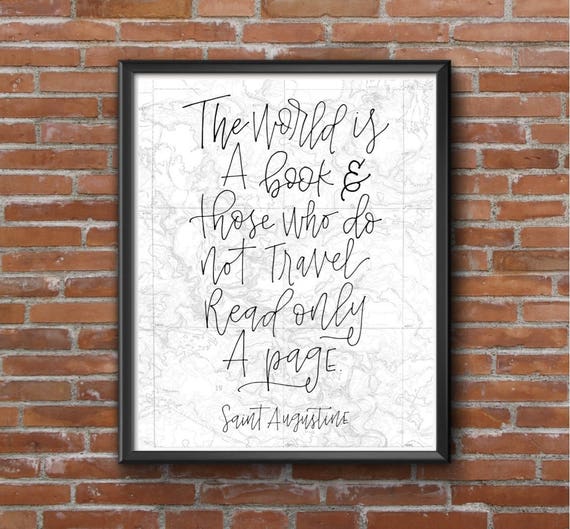 The World is
A book &
those who do
not Travel
Read only
A page.
Saint Augustine